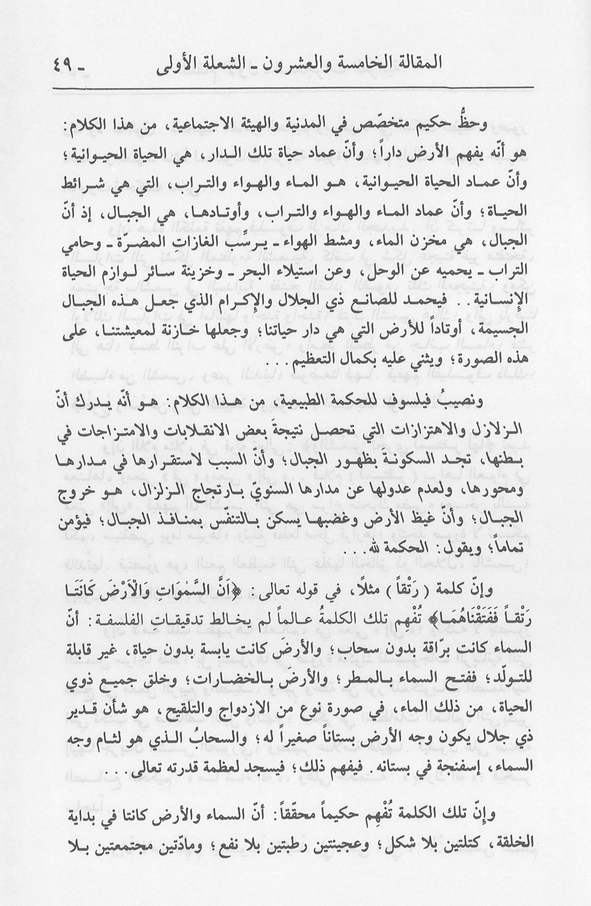 المقالة الخامسة والعشرون ـ الشعلة الأولى
ـ ٤٩
وحظُّ حكيم متخصّص في المدنية والهيئة الاجتماعية، من هذا الكلام:
هو أنّه يفهم الأرض داراً؛ وأنّ عماد حياة تلك الدار، هي الحياة الحيوانية؛
وأنّ عماد الحياة الحيوانية، هو الماء والهواء والتراب، التي هي شرائط
الحياة؛ وأنّ عماد الماء والهواء والتراب، وأوتادها، هي الجبال، إذ أنّ
الجبال، هي مخزن الماء، ومشط الهواء ـ يرسِّب الغازاتِ المضرّة ـ وحامي
التراب ـ يحميه عن الوحل، وعن استيلاء البحر ـ وخزينة سائر لوازم الحياة
الإنسانية.. فيحمد للصانع ذي الجلال والإكرام الذي جعل هذه الجبال
الجسيمة، أوتاداً للأرض التي هي دار حياتنا؛ وجعلها خازنة لمعيشتنا، على
هذه الصورة؛ ويثني عليه بكمال التعظيم...
ونصيبُ فيلسوف للحكمة الطبيعية، من هذا الكلام: هو أنّه يدرك أنّ
الزلازل والاهتزازات التي تحصل نتيجةَ بعض الانقلابات والامتزاجات في
بطنها، تجد السكونةَ بظهور الجبال؛ وأنّ السبب لاستقرارها في مدارها
ومحورها، ولعدم عدولها عن مدارها السنويّ بارتجاج الزلزال، هو خروج
الجبال؛ وأنّ غيظ الأرض وغضبها يسكن بالتنفّس بمنافذ الجبال؛ فيؤمن
تماماً؛ ويقول: الحكمة لله...
وإنّ كلمة ( رَتْقاً ) مثلا، في قوله تعالى: ﴿أَنَّ السَّمٰوَاتِ وَالْاَرْضَ كَانَتَا
رَتْقاً فَفَتَقْنَاهُمَا﴾ تُفْهِم تلك الكلمةُ عالماً لم يخالط تدقيقاتِ الفلسفة: أنّ
السماء كانت برّاقة بدون سحاب؛ والأرضَ كانت يابسة بدون حياة، غير قابلة
للتولّد؛ ففتح السماء بالمطر؛ والأرضَ بالخضارات؛ وخلق جميع ذوي
الحياة، من ذلك الماء، في صورة نوع من الازدواج والتلقيح، هو شأن قدير
ذي جلال يكون وجه الأرض بستاناً صغيراً له؛ والسحابُ الذي هو لثام وجه
السماء، إسفنجة في بستانه. فيفهم ذلك؛ فيسجد لعظمة قدرته تعالى...
وإنّ تلك الكلمة تُفْهِم حكيماً محقّقاً: أنّ السماء والأرض كانتا في بداية
الخلقة، كتلتين بلا شكل؛ وعجينتين رطبتين بلا نفع؛ ومادّتين مجتمعتين بلا